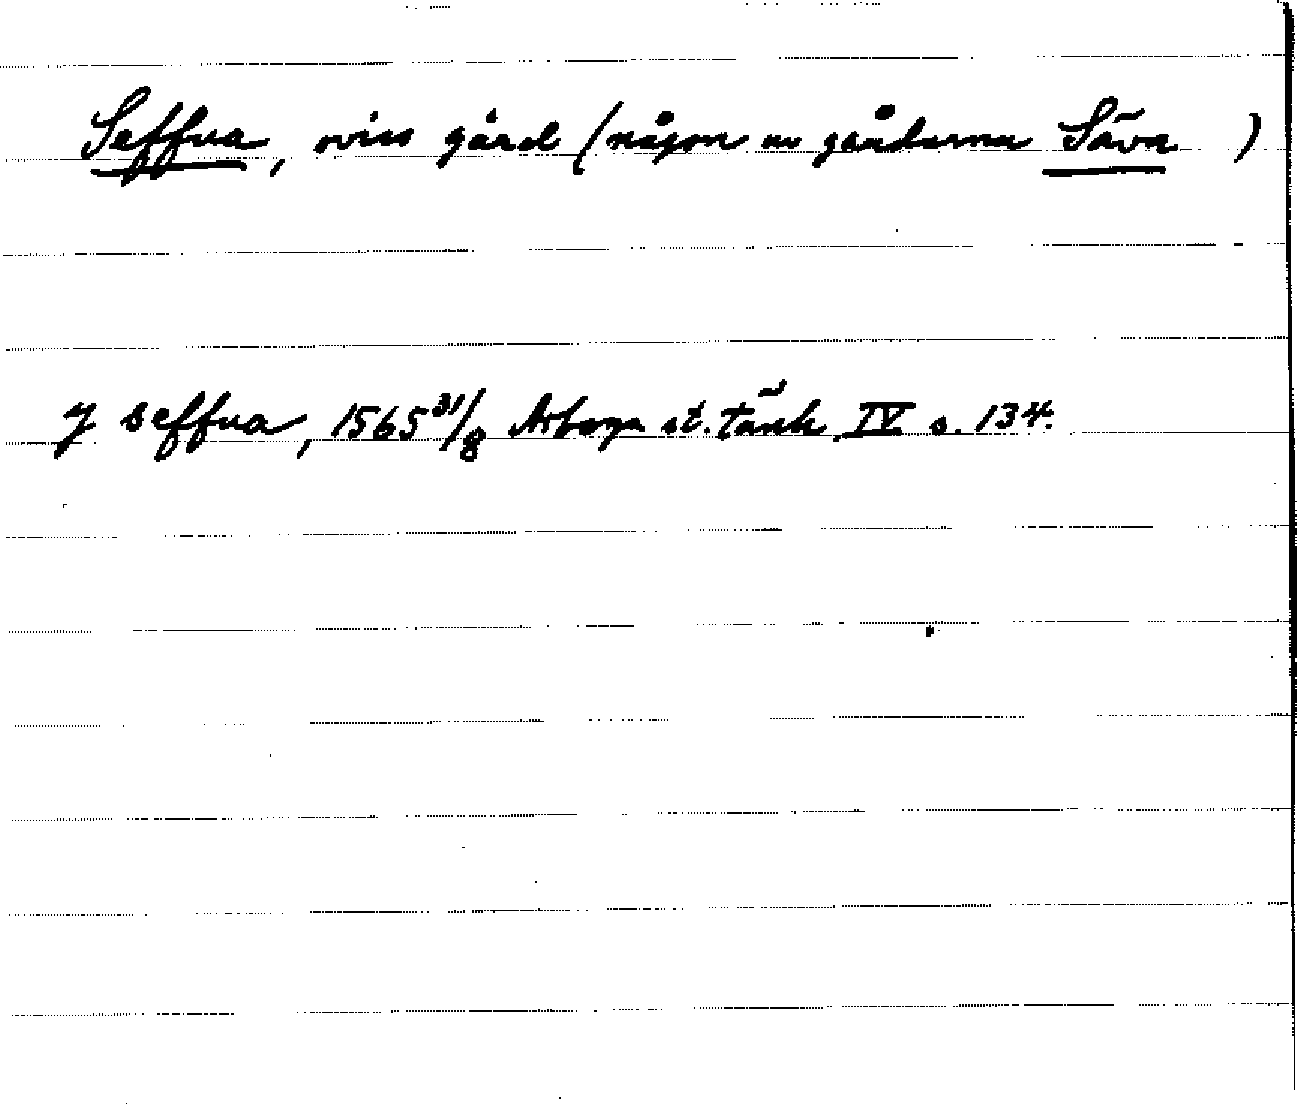 Seffua, oviss gård (någon av gårdarna Säva )
y seffua, 1565 31/8 Arboga st. tänk IV s. 134.